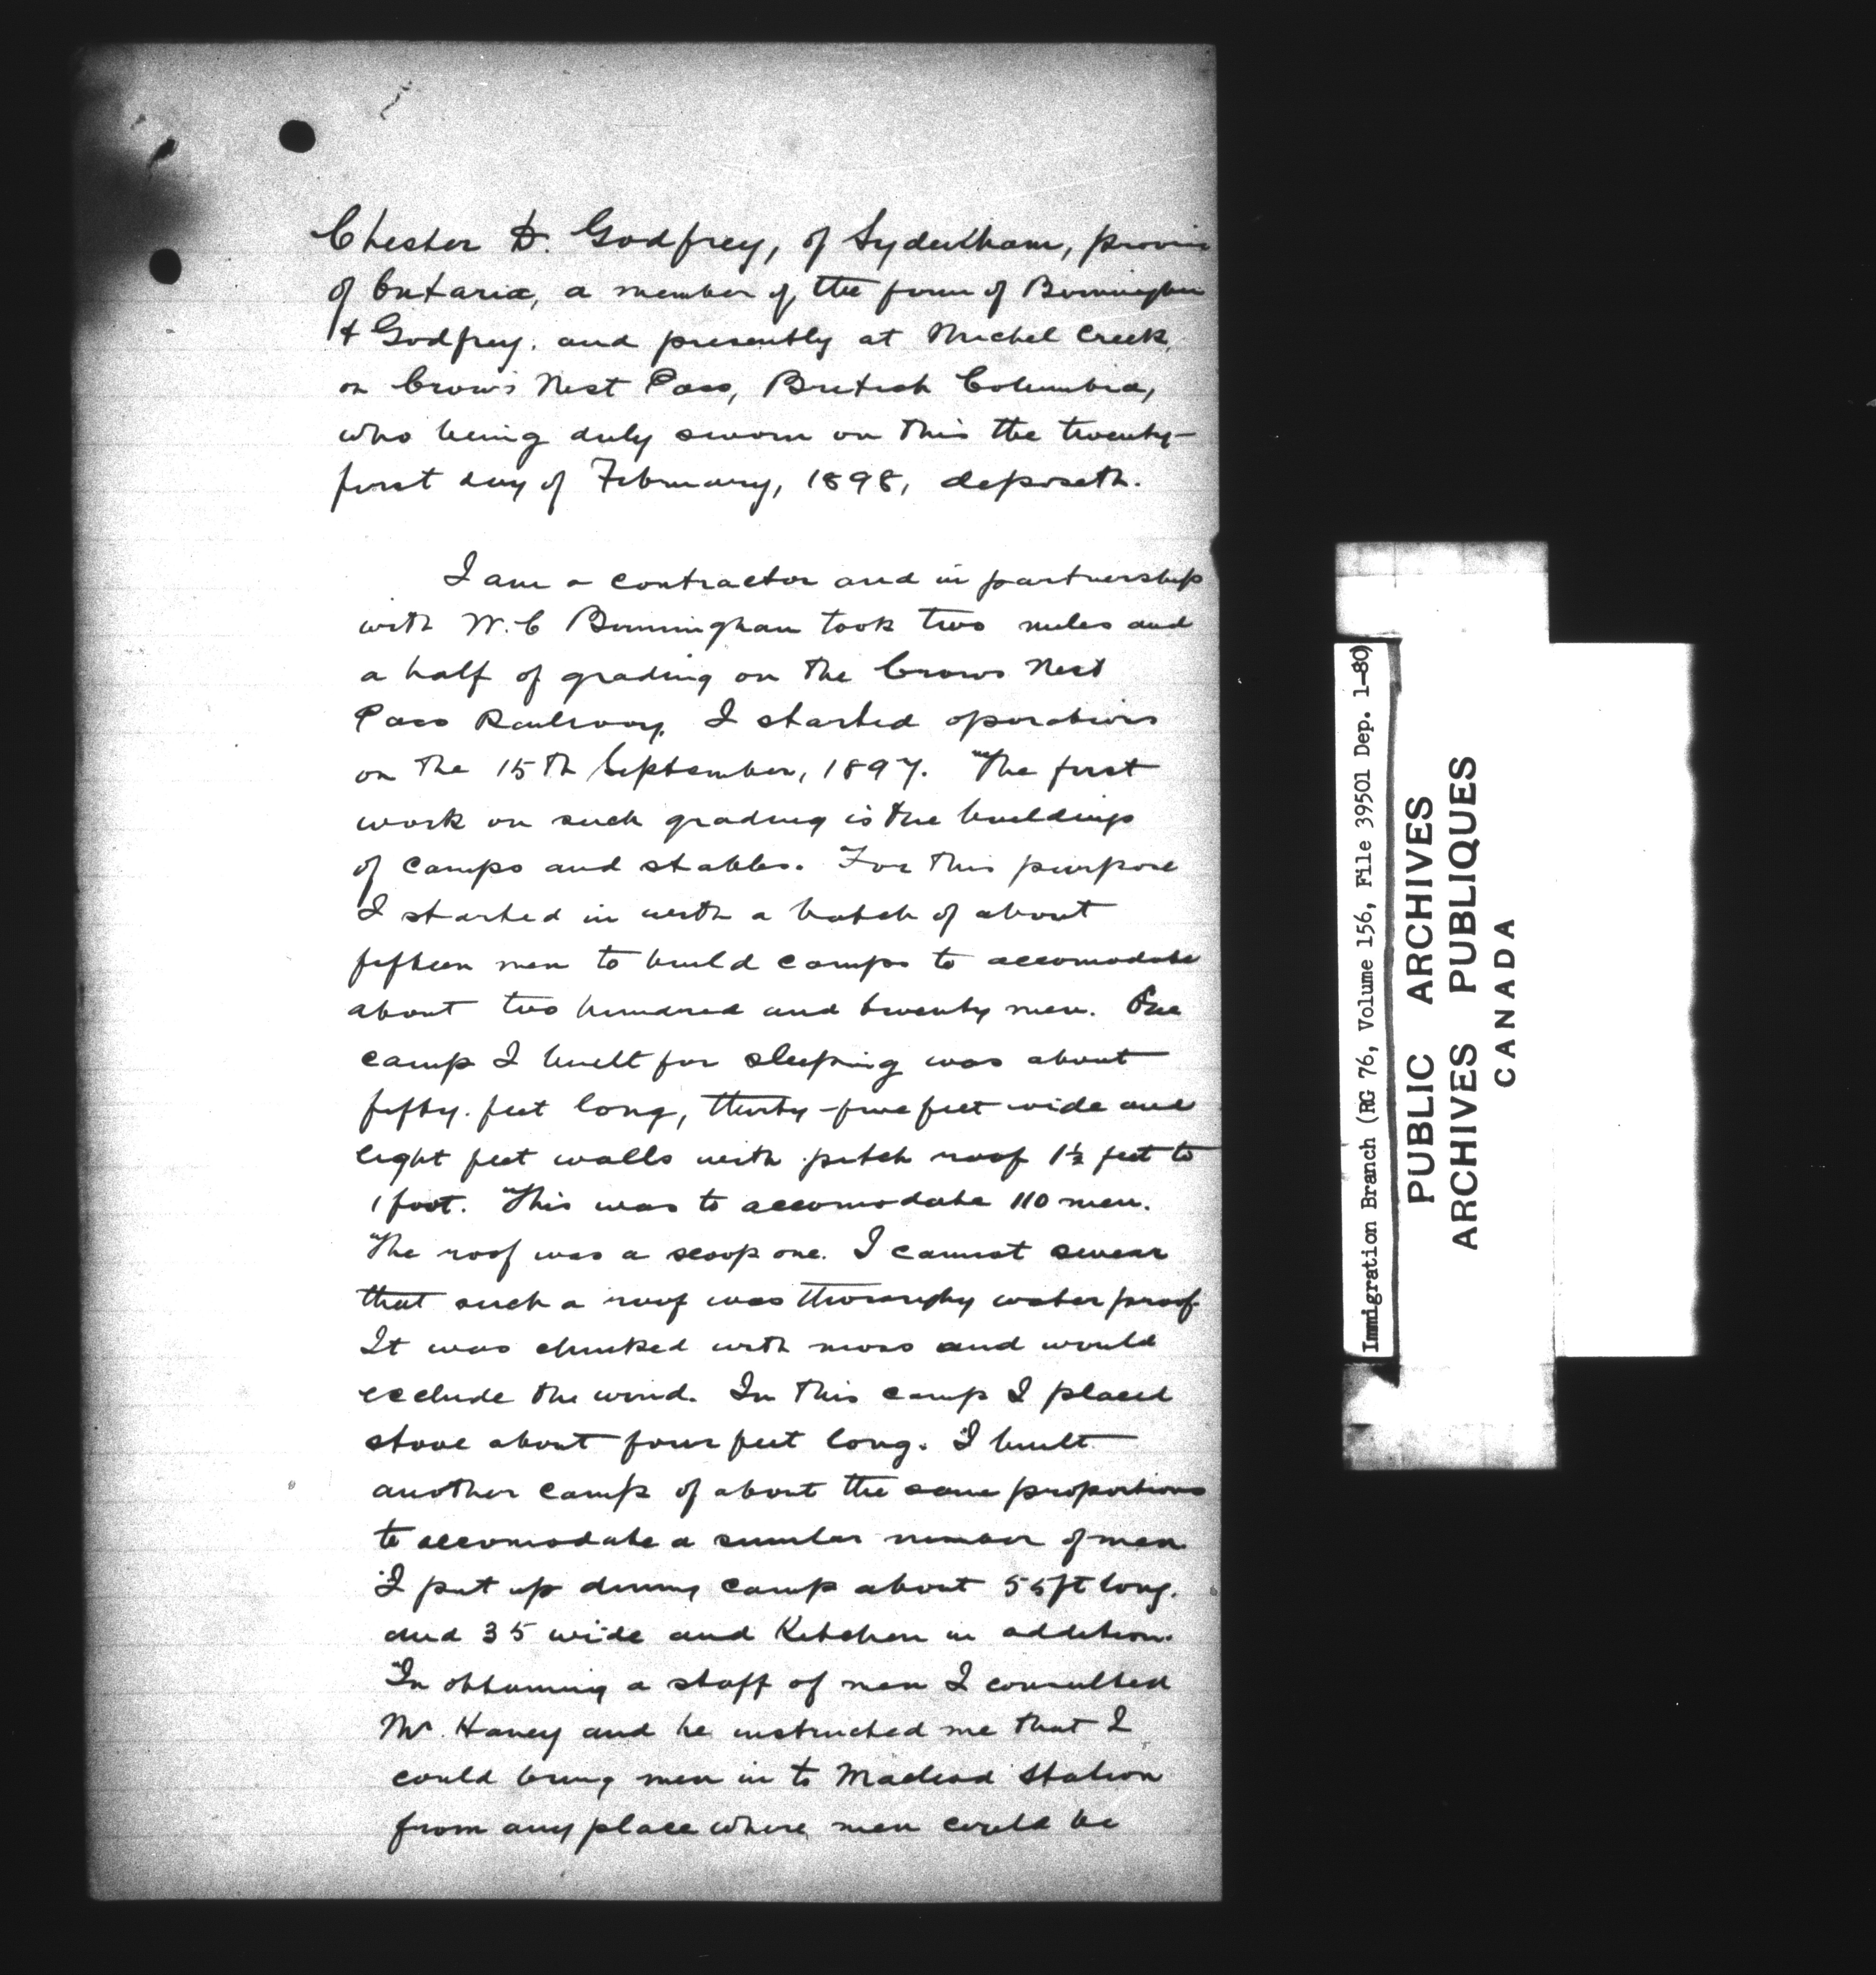 Chester D. Godfrey, of Sydenham, provin
of Ontario, a member of the firm of Birmingham
& Godfrey. and presently at Michel Creek,
on Crow's Nest Pass, British Columbia,
who being duly sworn on this the twenty-
first day of February, 1898, deposeth.
I am a contractor and in partnership
with W. C Birmingham took two miles and
a half of grading on the Crows Nest
Pass Railway. I started operations
on the 15th September, 1897. The first
work on such grading is the buildings
of camps and stables. For this purpose
I started in with a batch of about
fifteen men to build camps to accomodate
about two hundred and twenty men. One
camp I built for sleeping was about
fifty feet long, thirty-five feet wide and
eight feet walls with pitch roof 1½ feet to
1 foot. This was to accomodate 110 men.
The roof was a scoop one. I cannot swear
that such a roof was thoroughly water proof
It was chinked with moss and would
exclude the wind. In this camp I placed
stove about four feet long. I built
another camp of about the same proportions
to accomodate a similar number of men
I put up dining camp about 55 ft long.
and 35 wide and Kitchen in addition.
In obtaining a staff of men I consulted
Mr. Haney and he instructed me that I
could bring men in to Macleod Station
from any place where men could be
Immigration Branch (RG 76, Volume 156, File 39501 Dep. 1-80)
PUBLIC ARCHIVES
ARCHIVES PUBLIQUES
CANADA